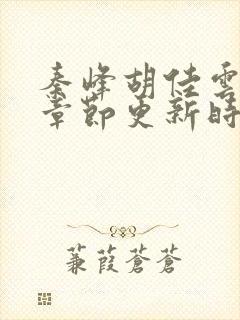 秦峰胡佳雲
章節更新時
蒹葭蒼蒼